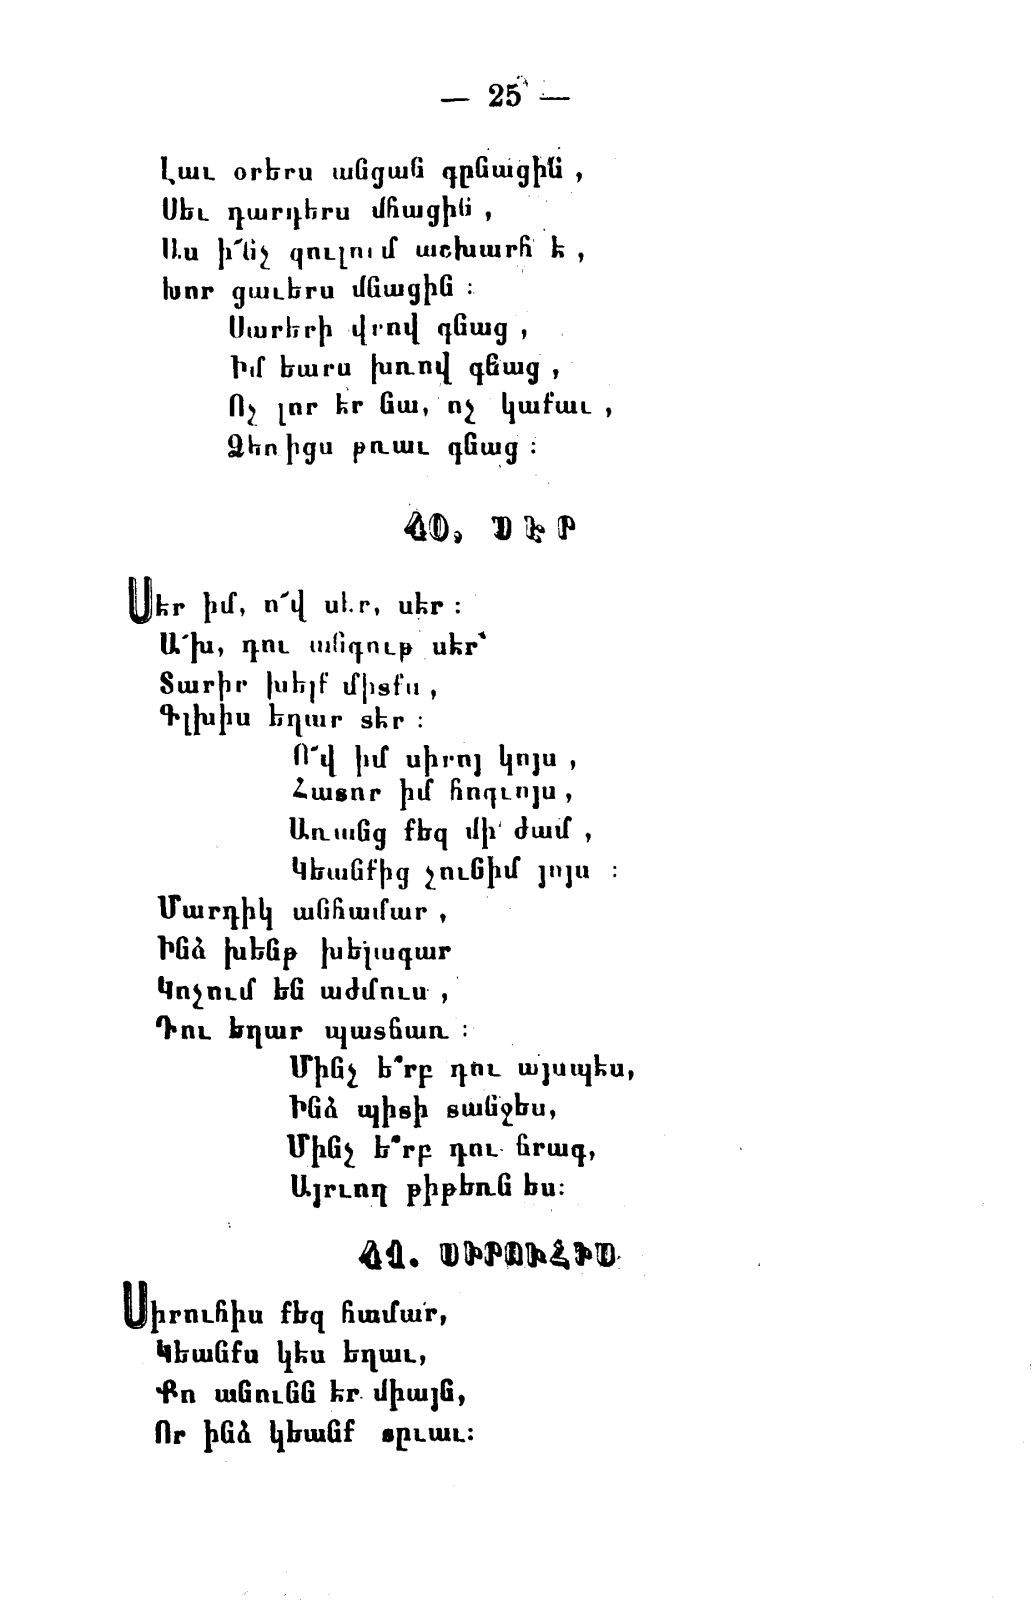 — 25 —
Լաւ օրերս անցան գընացին,
Սեւ դարդերս մնացին,
Աս ի՜նչ զուլում աշխարհ է,
Խոր ցաւերս մնացին:
Սարերի վրով գնաց,
Իմ եարս խռով գնաց,
Ոչ լոր էր նա, ոչ կաքաւ,
Ձեռիցս թռաւ գնաց:
40, ՍԷՐ
Սէր իմ, ո՜վ սէր, սէր:
Ա՜խ, դու անգութ սէր՝
Տարիր խելք միտքս,
Գլխիս եղար տէր:
Ո՜վ իմ սիրոյ կոյս,
Հատոր իմ հոգւոյս,
Առանց քեզ մի ժամ,
Կեանքից չունիմ յոյս:
Մարդիկ անհամար,
Ինձ խենթ խելագար
Կոչում են աժմուս,
Դու եղար պատճառ:
Մինչ ե՞րբ դու այսպէս,
Ինձ պիտի տանջես,
Մինչ ե՞րբ դու ճրագ,
Այրւող թիթեռն ես:
41. ՍԻՐՈՒՀԻՍ
Սիրուհիս քեզ համար,
Կեանքս կէս եղաւ,
Քո անունն էր միայն,
Որ ինձ կեանք տըւաւ: